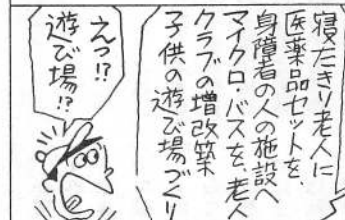 寝たきり老人に
医薬品セットを、
身障者の人の施設へ
マイクロ・バスを、老人
クラブの増改築
子供の遊び場づくり
えっ!?
遊び場!?